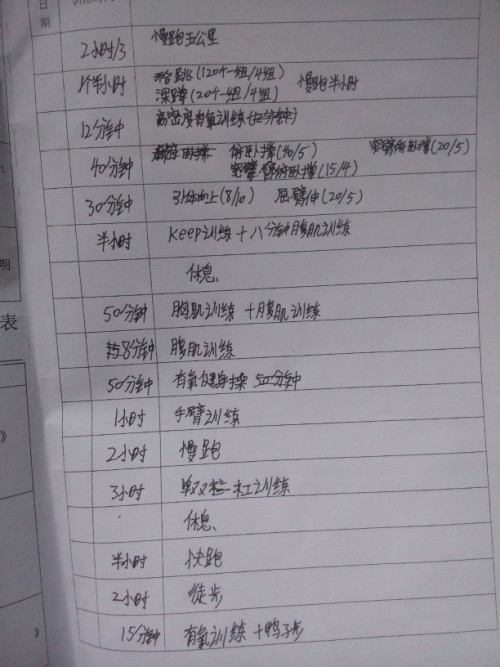 日期
2小时/3 慢跑五公里
1个半小时 跆跳(120个一组/4组)
深蹲(20个一组/4组) 慢跑半小时
12分钟 高密度有氧训练(12分钟)
40分钟 俯卧撑(40/5) 窄臂俯卧撑(20/5)
宽臂俯卧撑(15/4)
30分钟 引体向上(8/10) 屈臂伸(20/5)
半小时 keep训练+八分钟腹肌训练
休息
50分钟 胸肌训练+腹肌训练
8分钟 腹肌训练
50分钟 有氧健身操 50分钟
1小时 手臂训练
2小时 慢跑
3小时 单双杠训练
休息
半小时 快跑
2小时 徒步
15分钟 有氧训练+鸭子步
明
表
》
》